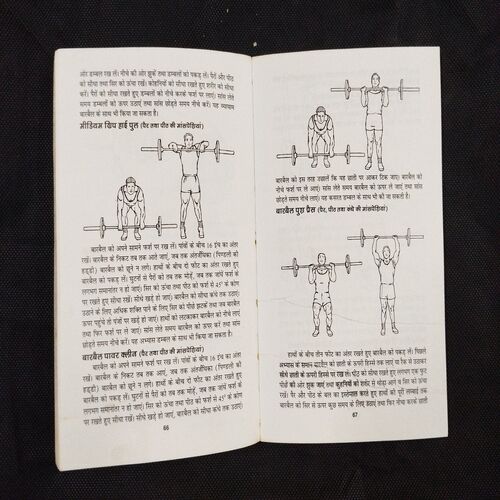 ओर डम्बल रख लें। नीचे की ओर झुकें तथा डम्बलों को पकड़ लें। पैरों और पीठ
को सीधा तथा सिर को ऊंचा रखें। कोहनियों को सीधा रखते हुए शरीर को सीधा
करें। पैरों को सीधा रखते हुए डम्बलों को नीचे करके फर्श पर लाएं। सांस लेते
समय डम्बलों को ऊपर उठाएं तथा सांस छोड़ते समय नीचे करें। यह व्यायाम
बारबैल के साथ भी किया जा सकता है।
मीडियम ग्रिप हाई पुल (पैर तथा पीठ की मांसपेशियां)
बारबैल को अपने सामने फर्श पर रख लें। पांवों के बीच 16 इंच का अंतर
रखें। बारबैल के निकट तब तक आते जाएं, जब तक अंतर्जंघिका (पिण्डली की
हड्डी) बारबैल को छूने न लगे। हाथों के बीच दो फीट का अंतर रखते हुए
बारबैल को पकड़ लें। घुटनों से पैरों को तब तक मोड़ें, जब तक जांघें फर्श के
लगभग समानांतर न हो जाएं। सिर को ऊंचा तथा पीठ को फर्श से 45° के कोण
पर रखते हुए सीधा रखें। सीधे खड़े हो जाएं। बारबैल को सीधा कंधे तक उठाएं।
उठाने के लिए अधिक शक्ति पाने के लिए सिर को पीछे झटकें तथा जब बारबैल
ऊपर पहुंचे तो पंजों पर खड़े हो जाएं। हाथों को लटकाकर बारबैल को नीचे करें तथा
फिर फर्श पर ले आएं। सांस लेते समय बारबैल को ऊपर करें तथा सांस
छोड़ते समय नीचे करें। यह अभ्यास डम्बल के साथ भी किया जा सकता है।
बारबैल पावर क्लीन (पैर तथा पीठ की मांसपेशियां)
बारबैल को अपने सामने फर्श पर रख लें। पांवों के बीच 16 इंच का अंतर
रखें। बारबैल के निकट तब तक आएं, जब तक अंतर्जंघिका (पिण्डली की
हड्डी) बारबैल को छूने न लगे। हाथों के बीच दो फीट का अंतर रखते हुए
बारबैल को पकड़ लें। घुटनों से पैरों को तब तक मोड़ें, जब तक जांघें फर्श के
समानांतर न हो जाएं। सिर को ऊंचा तथा पीठ को फर्श से 45° के कोण
पर रखते हुए सीधा रखें। सीधे खड़े हो जाएं, बारबैल को सीधा कंधे तक उठाएं।
66
बारबैल को इस तरह उछालें कि यह छाती पर आकर टिक जाए। बारबैल को
नीचे फर्श पर ले आएं। सांस लेते समय बारबैल को ऊपर ले जाएं तथा सांस
छोड़ते समय नीचे करें। यह कसरत डम्बल के साथ भी की जा सकती है।
बारबैल पुश प्रैस (पैर, पीठ तथा कंधे की मांसपेशियां)
हाथों के बीच तीन फीट का अंतर रखते हुए बारबैल को पकड़ लें। पिछले
अभ्यास के समान बारबैल को छाती के ऊपरी हिस्से तक लाएं या रैक से उठाकर
सीधे छाती के ऊपरी हिस्से पर रख लें। पीठ को सीधा रखते हुए लगभग एक फुट
घुटनों को आगे झुक जाएं तथा कुहनियों को शरीर से थोड़ा आगे व सिर को ऊंचा
रखें। पैर और पीठ के बल का इस्तेमाल करते हुए हाथों को पूरी लम्बाई तक
बारबैल को सिर से ऊपर कुछ समय के लिए उठाएं तथा फिर नीचे करके छाती
67